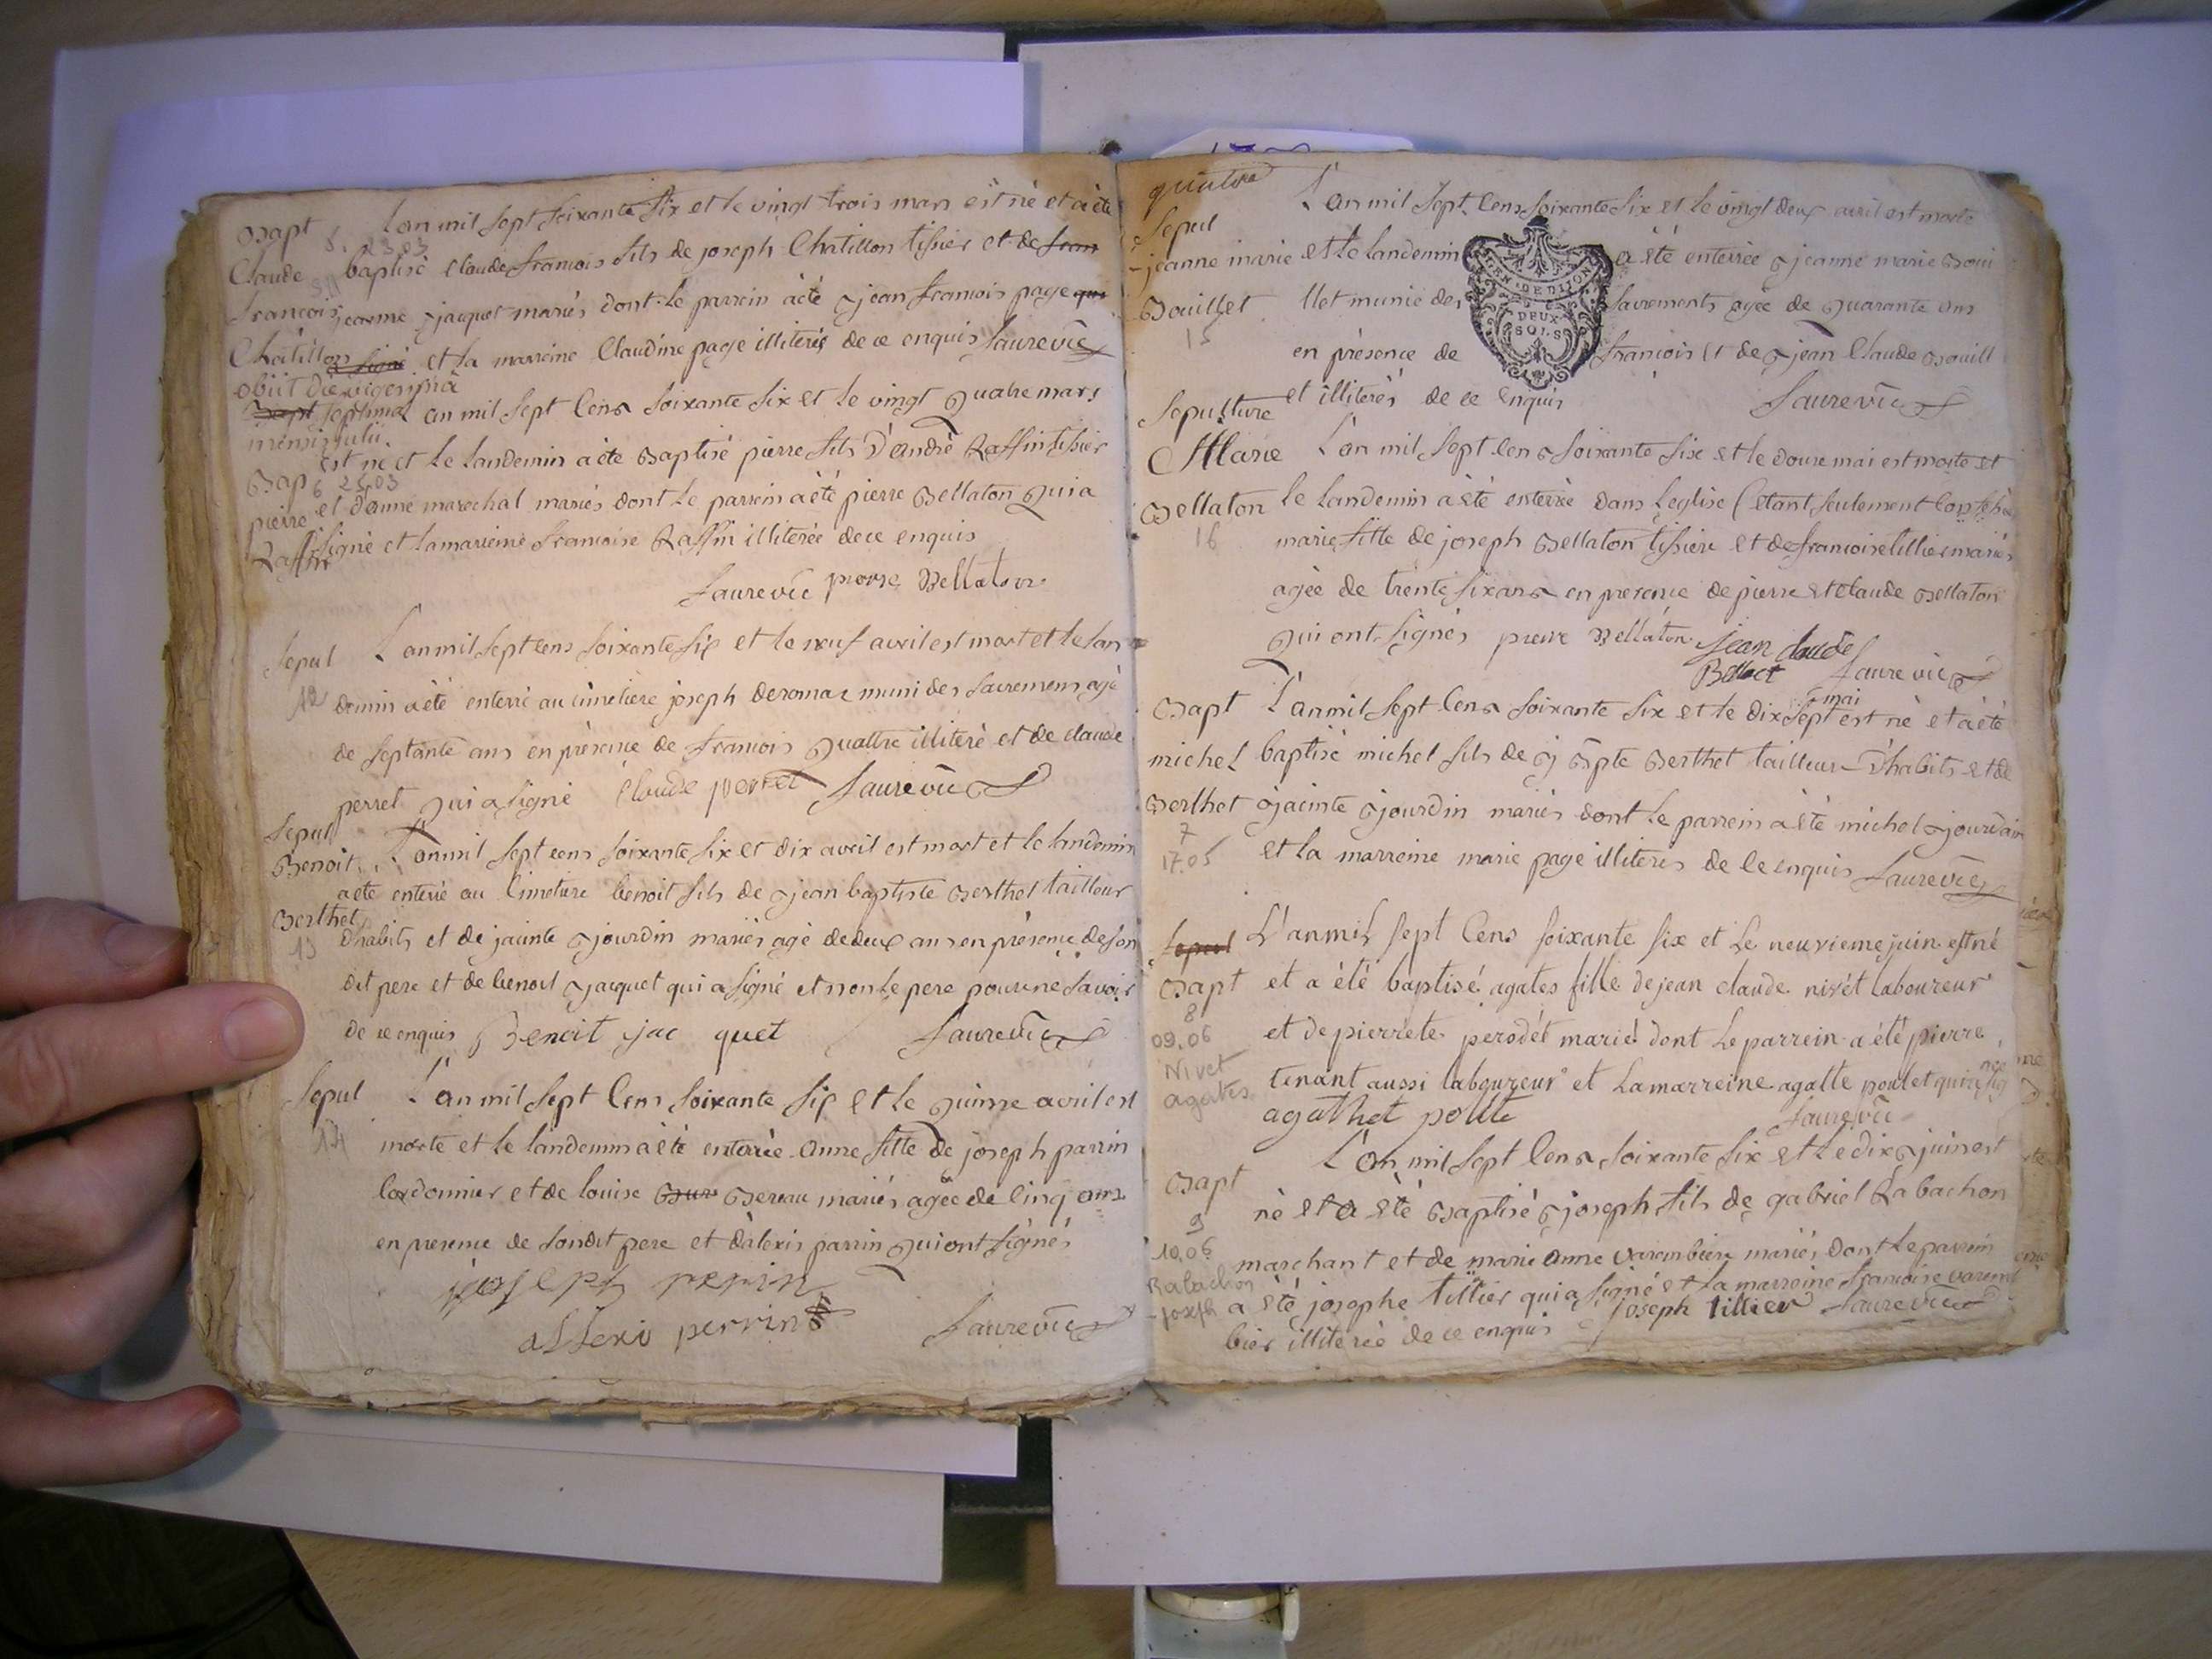 Bapt
Claude
francois
Chatillon
obiit die vigesima
septima
mensis julii.
5. 23.03
L'an mil sept soixante six et le vingt trois mars est né et a été
baptisé claude francois fils de joseph Chatillon tissier et de fran
jeanne jacquet mariés dont le parrein a été jean francois page qui
a signé et la marreine Claudine page illiterés de ce enquis faure vic
Bapt
Bap
6 25.03
pierre
Raffin
L an mil sept Cens soixante six et le vingt quatre mars
est ne et le landemin a été Baptisé pierre fils d'andré Raffin tissier
et d'anne marechal mariés dont le parrein a été pierre Bellaton qui a
signé et la mareine francoise Raffin illiterée de ce enquis
faure vic pierre Bellaton
Sepul
12
L an mil sept cens soixante six et le neuf avril est mort et le lan
demin a été enterré au cimetiere joseph deromas muni des sacremens agé
de septante ans en présence de francois quattre illiteré et de claude
perret qui a signé Claude perret faure vic
Sepul
Benoit
Berthet
13
L'an mil sept cens soixante six et dix avril est mort et le landemin
a été enterré au Cimetiere benoit fils de jean baptiste Berthet tailleur
d'habits et de jacinte jourdin mariés agé de deux ans en présence de son
dit pere et de benoit jacquet qui a signé et non le pere pour ne savoir
de ce enquis Benoit jac quet faure vic
Sepul
14
L'an mil sept Cens soixante six et le quinze avril est
morte et le landemin a été enterrée anne fille de joseph parrin
Cordonnier et de louise Bereau mariés agée de Cinq ans
en presence de sondit pere et d'alexis parrin qui ont signés
joseph perrin
allexi perrin faure vic
quatre
Sepul
jeanne marie
Bouillet
15
L'an mil sept Cens soixante six et le vingt deux avril est morte
et le landemin a été enterrée jeanne marie Boui
llet munie des sacrements agée de quarante ans
en présence de francois et de jean Claude Bouill
et illiterés de ce enquis faure vic
GEN. DE DIJON
DEUX
SOLS
Sepulture
Marie
Bellaton
16
L'an mil sept cens soixante six et le douze mai est morte et
le landemin a été enterrée dans l'eglise (etant seulement
marie fille de joseph Bellaton tissiere et de francoise tillier mariés
agée de trente six ans en presence de pierre et claude Bellaton
qui ont signés pierre Bellaton jean claude
faure vic
Bapt
michel
Berthet
7
17.05
L'an mil sept Cens soixante six et le dix sept mai est né et a été
baptisé michel fils de j Bpte Berthet tailleur d'habits et de
jacinte jourdin mariés dont le parrein a été michel jourdain
et la marreine marie page illiterés de ce enquis faure vic
Sepul
Bapt
8
09.06
Nivet
agates
L'an mil sept Cens soixante six et le neuvieme juin est né
et a été baptisé agates fille de jean claude nivét laboureur
et de pierrete perodét marié dont le parrein a été pierre
tenant aussi laboureur et la marreine agatte poulet qui a sig
née
agathet polite faure vic
Bapt
9
10.06
Rabachon
joseph
L'an mil sept Cens soixante six et le dix juin est
né et a été Baptisé joseph fils de gabriel Rabachon
marchant et de marie anne varembiere mariés dont le parrein
a été josephe tillier qui a signé et la marreine francoise varem
bier illiterée de ce enquis joseph tillier faure vic